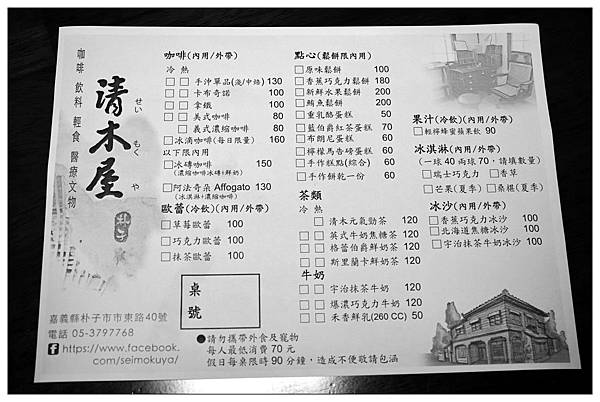 咖啡 飲料 輕食 醫療文物
清木屋
せい もく や
朴子
嘉義縣朴子市市東路40號
電話 05-3797768
https://www.facebook.
com/seimokuya/
咖啡(內用/外帶)
冷 熱
□ □ 手沖單品(淺/中焙) 130
□ □ 卡布奇諾 100
□ □ 拿鐵 100
□ □ 美式咖啡 80
□ 義式濃縮咖啡 80
□冰滴咖啡(每日限量) 160
以下限內用
□冰磚咖啡 150
(濃縮咖啡冰磚+鮮奶)
□阿法奇朵 Affogato 130
(冰淇淋+濃縮咖啡)
歐蕾(冷飲)(內用/外帶)
□草莓歐蕾 100
□巧克力歐蕾 100
□抹茶歐蕾 100
桌號
點心(鬆餅限內用)
□原味鬆餅 100
□香蕉巧克力鬆餅 180
□新鮮水果鬆餅 200
□鮪魚鬆餅 200
□重乳酪蛋糕 50
□藍伯爵紅茶蛋糕 70
□布朗尼蛋糕 60
□檸檬馬告磅蛋糕 60
□手作糕點(綜合) 60
□手作餅乾一份 60
茶類
冷 熱
□ 清木元氣勁茶 120
□ □ 英式牛奶焦糖茶 120
□ □ 格蕾伯爵鮮奶茶 120
□ □ 斯里蘭卡鮮奶茶 120
牛奶
□ □ 宇治抹茶牛奶 120
□ □ 爆濃巧克力牛奶 120
□ □ 禾香鮮乳(260 CC) 50
果汁(冷飲)(內用/外帶)
□輕檸蜂蜜蘋果飲 90
冰淇淋(內用/外帶)
(一球40 兩球70,請填數量)
□瑞士巧克力 □香草
□芒果(夏季) □桑椹(夏季)
冰沙(內用/外帶)
□香蕉巧克力冰沙 100
□北海道焦糖冰沙 100
□宇治抹茶牛奶冰沙 100
●請勿攜帶外食及寵物
每人最低消費70元
假日每桌限時90分鐘,造成不便敬請包涵